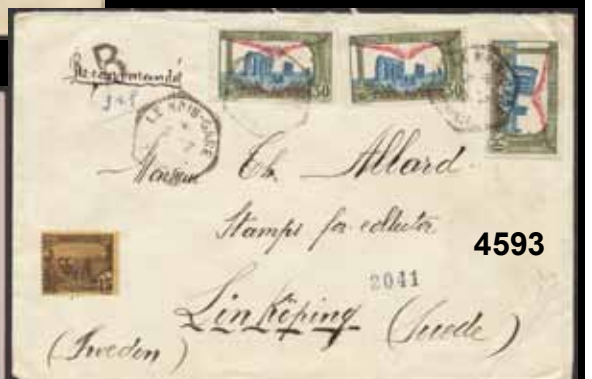 R
Recommandé
30
30
LE KRIB-GARE
Monsieur Th. Allard
Stamps for collector
4593
2041
Linköping (Suede)
(Sweden)